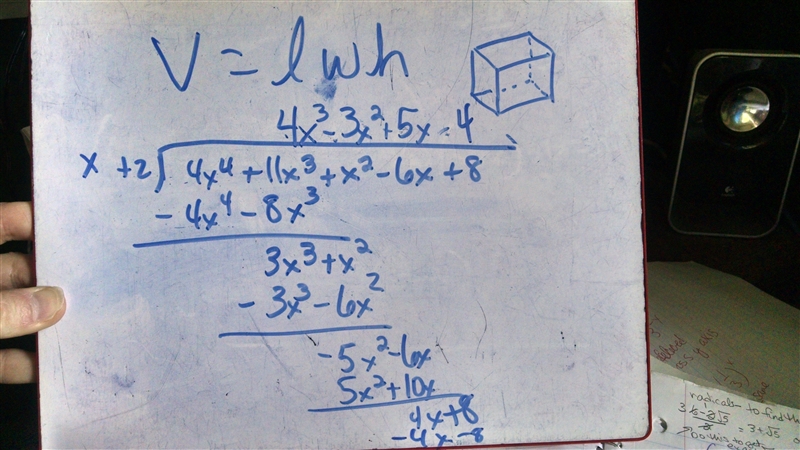 V = l w h
4x³ - 3x² + 5x - 4
x + 2 ⟌ 4x⁴ + 11x³ + x² - 6x + 8
- 4x⁴ - 8x³
3x³ + x²
- 3x³ - 6x²
- 5x² - 6x
5x² + 10x
4x + 8
- 4x - 8
radicals to find th
= 3 + √5